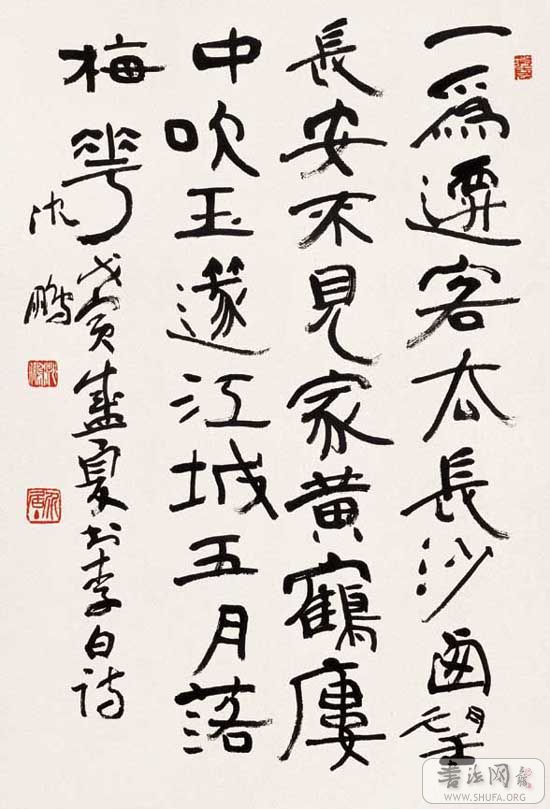 一為遷客去長沙西望
長安不見家黃鶴廔
中吹玉篴江城五月落
梅華
戊寅盛夏书李白诗
沈鵬
書法网
WWW.SHUFA.ORG